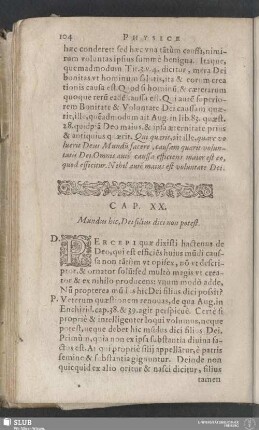 SLUB
104 PHYSICÆ
hæc conderet sed hæc vna tãtùm caussa, nimi-
rum voluntas ipsius summè benigna. Itaque,
quemadmodum Tit.3.v.4. dicitur, mera Dei
bonitas vt hominum salutis, ita & eorum crea-
tionis causa est. Quòd si hominũ, & cæterarum
quoque rerũ eadẽ caussa est. Qui autẽ superio-
rem Bonitate & Voluntate Dei caussam quæ-
rit, ille, quẽadmodum ait Aug. in lib.83. quæst.
28. quidpiã Deo maius, & ipsa æternitate prius
& antiquius quærit. Qui quærit, ait ille, quare vo-
luerit Deus Mundũ facere, caussam quærit volun-
tatis Dei. Omnis autẽ caussa efficiens maior est eo,
quod efficitur. Nihil autẽ maius est voluntate Dei.
CAP. XX.
Mundus hic, Dei filius dici non potest.
D. PERCEPI quæ dixisti hactenus de
Deo, qui est efficiẽs huius mũdi caus-
sa non tãtùm vt opifex, nõ vt descri-
ptor, & ornator solùm sed multò magis vt crea-
tor & ex nihilo producens: vnum modò adde,
Nũ propterea mũdus hic Dei filius dici possit?
P. Veterum quæstionem renouas, de qua Aug. in
Enchirid. cap.38. & 39. agit perspicuè. Certè si
propriè & intelligenter loqui volumus, neque
potest, neque debet hic mũdus dici filius Dei.
Primũ, quia non ex ipsa substantia diuina fa-
ctus est. At qui propriè filij appellãtur, è patris
semine & substantia gignuntur. Deinde non
quicquid ex alio oritur & nasci dicitur, filius
tamen